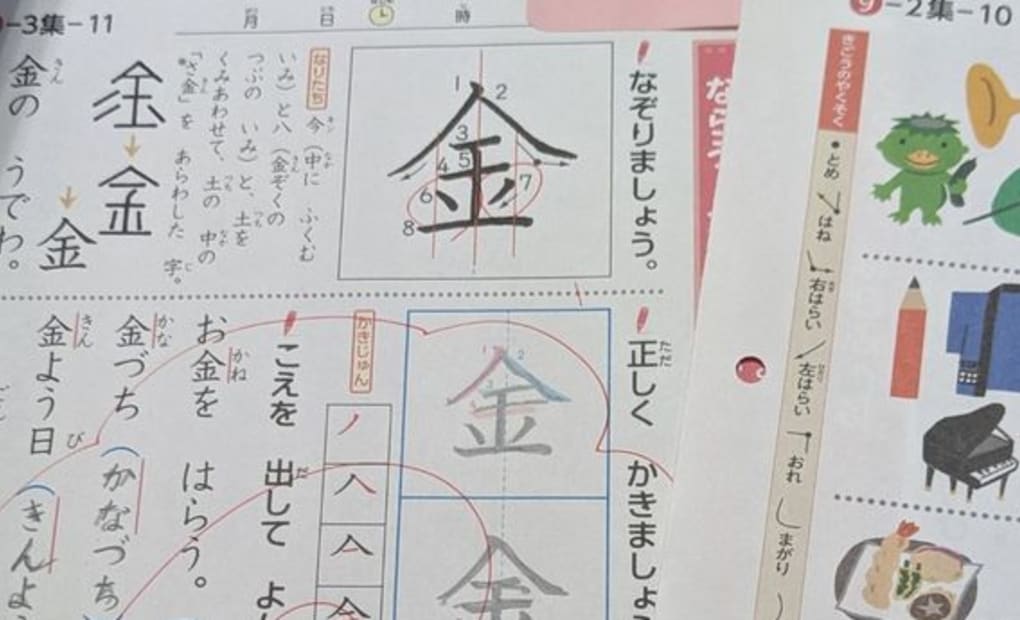 -3集-11
月 日 時
なぞりましょう。
1 2 3 4 5 6 7 8
金
なりたち
今(中に ふくむ
いみ)と八(金ぞくの
つぶの いみ)と、土を
くみあわせて、土の 中の
「さ金」を あらわした 字。
金
金の うでわ。
正しく かきましょ
金
金
かきじゅん
こえを 出して よ
お金を はらう。
金づち かなづち
金よう日 きんよ
9-2集-10
きごうのやくそく
とめ
はね
右はらい
左はらい
おれ
まがり